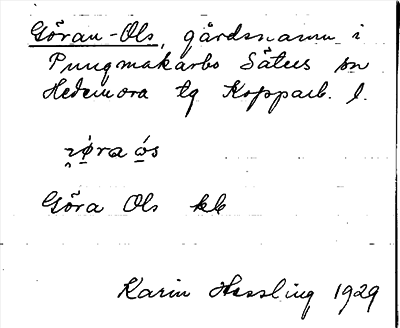 Göran-Ols, gårdsnamn i
Pungmakarbo Säters sn
Hedemora tg Kopparb. l.
ɂø̱ra ó̱s
Göra Ols kb
Karin Hessling 1929